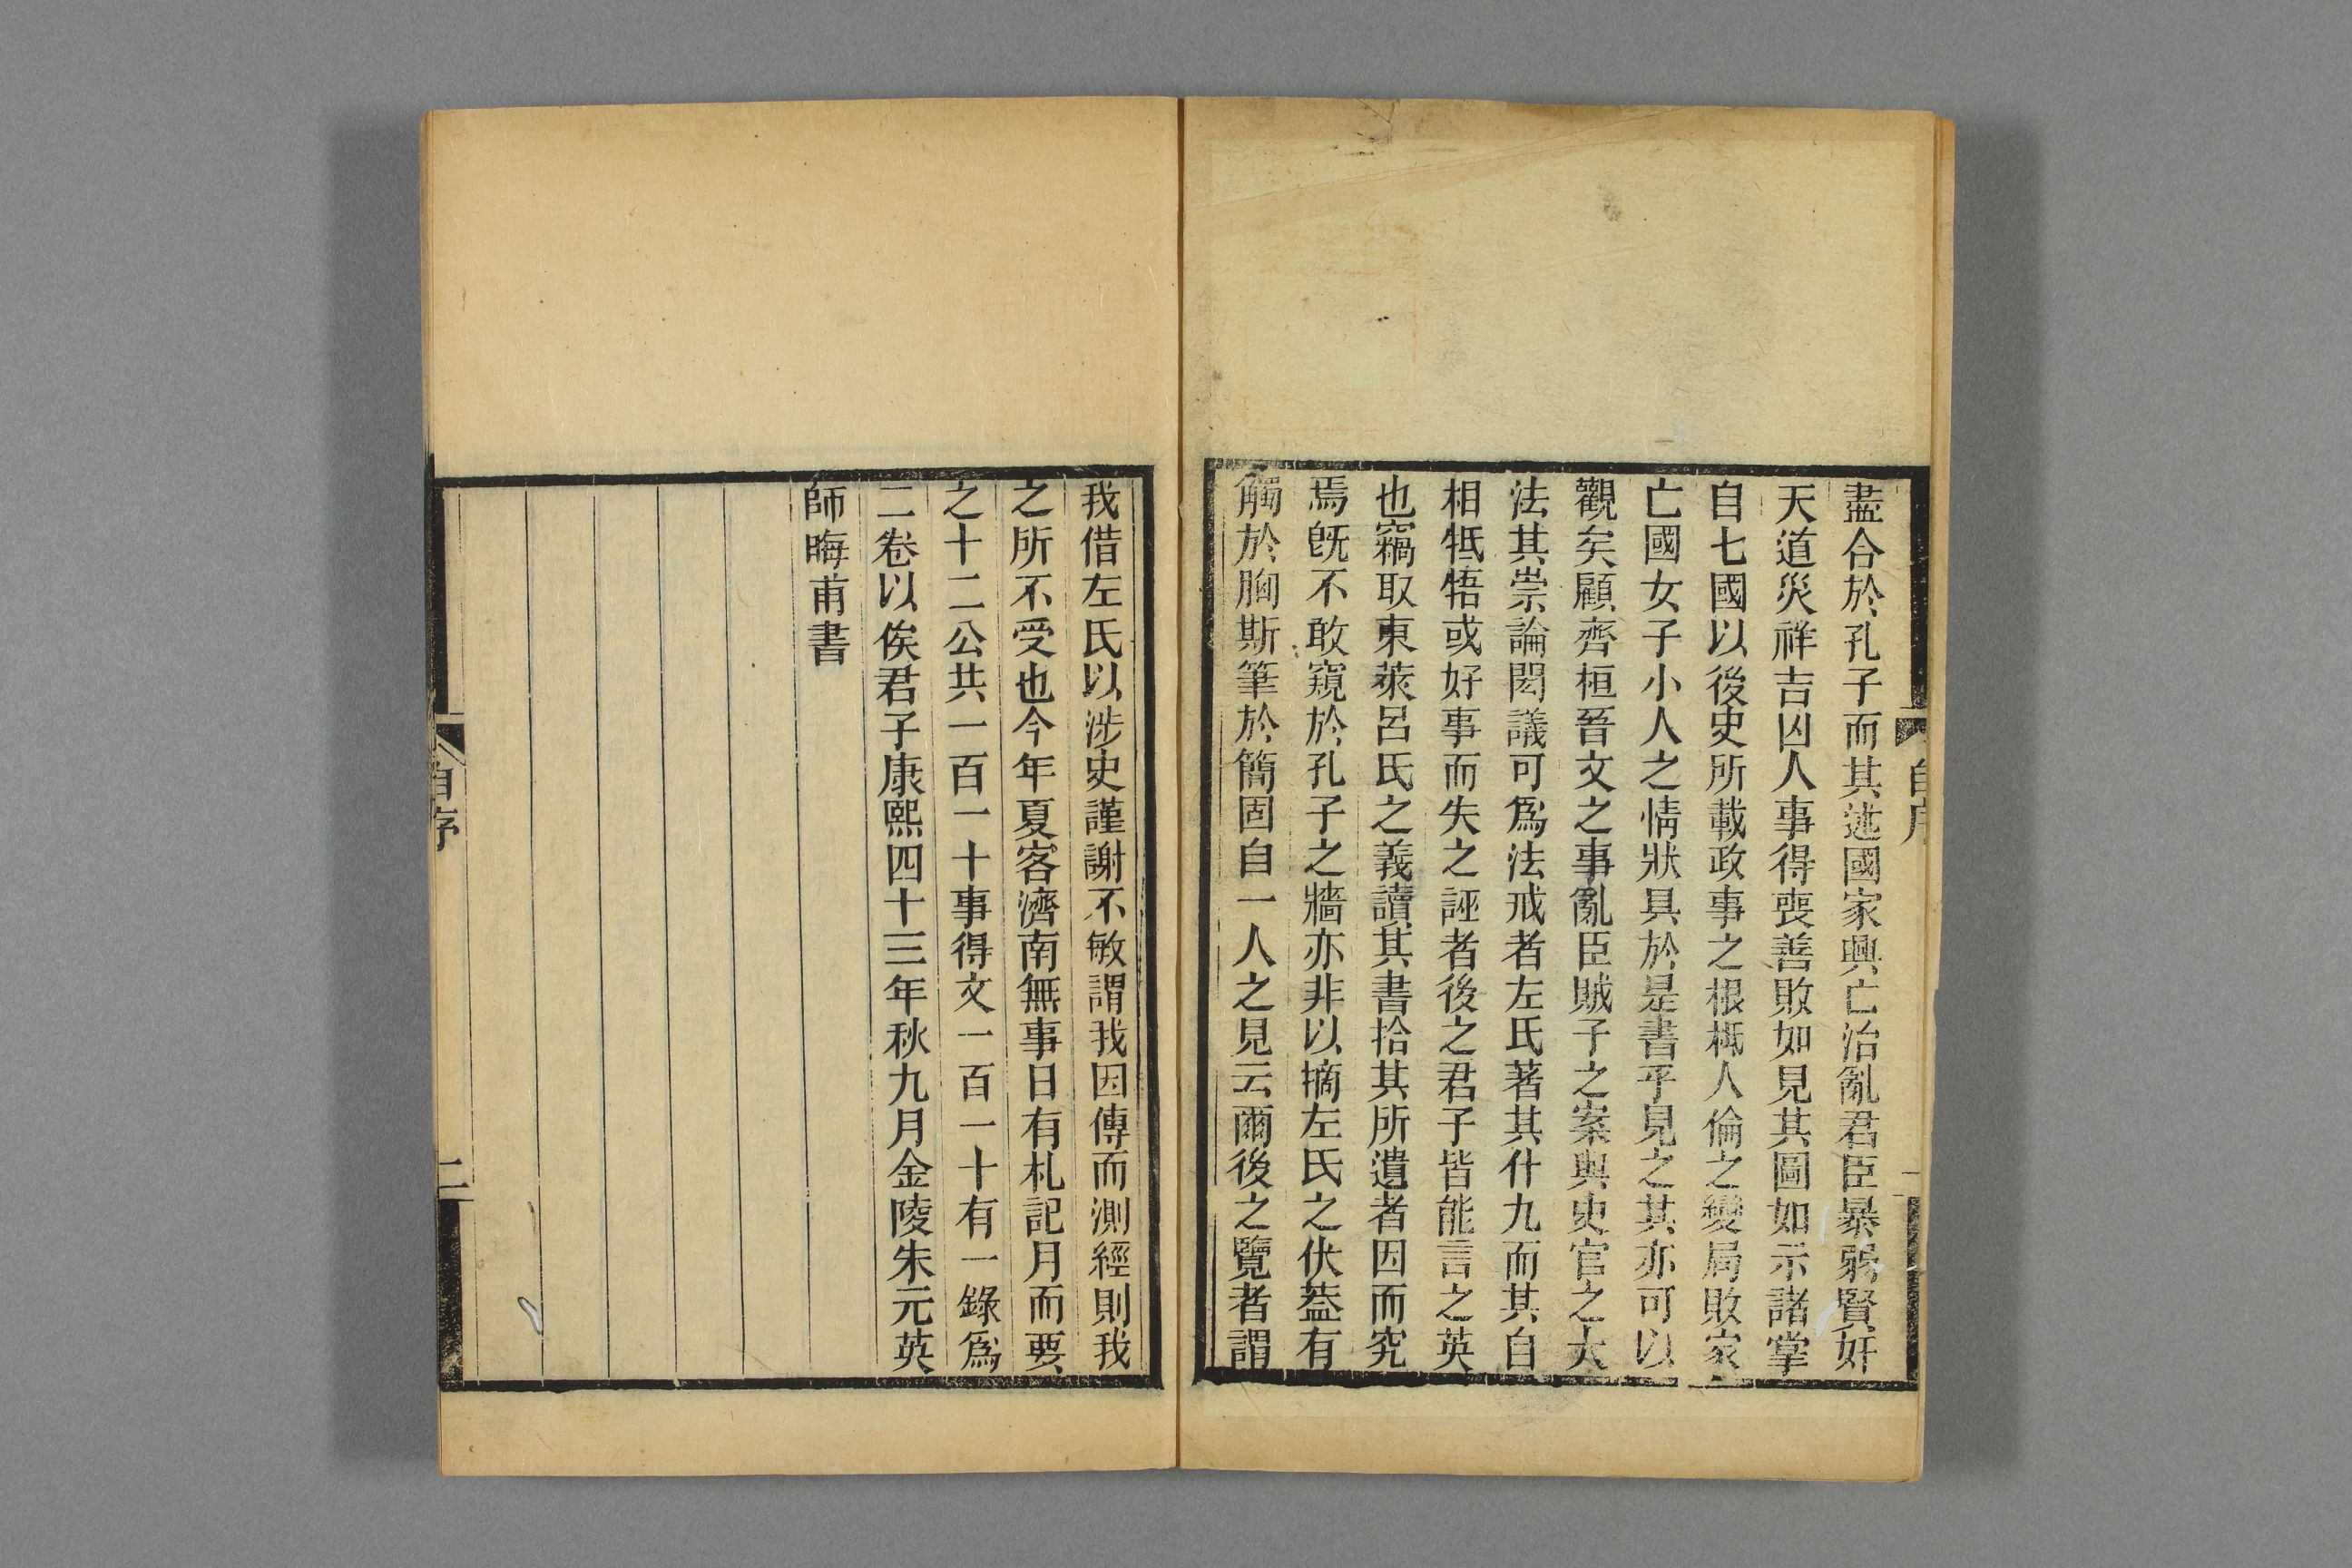 盡合於孔子而其述國家興亡治亂君臣暴弱賢奸
天道災祥吉凶人事得喪善敗如見其圖如示諸掌
自七國以後史所載政事之根柢人倫之變局敗家
亡國女子小人之情狀具於是書乎見之其亦可以
觀矣顧齊桓晉文之事亂臣賊子之案與史官之大
法其崇論閎議可爲法戒者左氏著其什九而其自
相牴牾或好事而失之誣者後之君子皆能言之英
也竊取東萊呂氏之義讀其書拾其所遺者因而究
焉旣不敢窺於孔子之牆亦非以摘左氏之伏葢有
觸於胸斯筆於簡固自一人之見云爾後之覽者謂
自序
我借左氏以涉史謹謝不敏謂我因傳而測經則我
之所不受也今年夏客濟南無事日有札記月而要
之十二公共一百一十事得文一百一十有一錄爲
二卷以俟君子康熙四十三年秋九月金陵朱元英
師晦甫書
自序
二